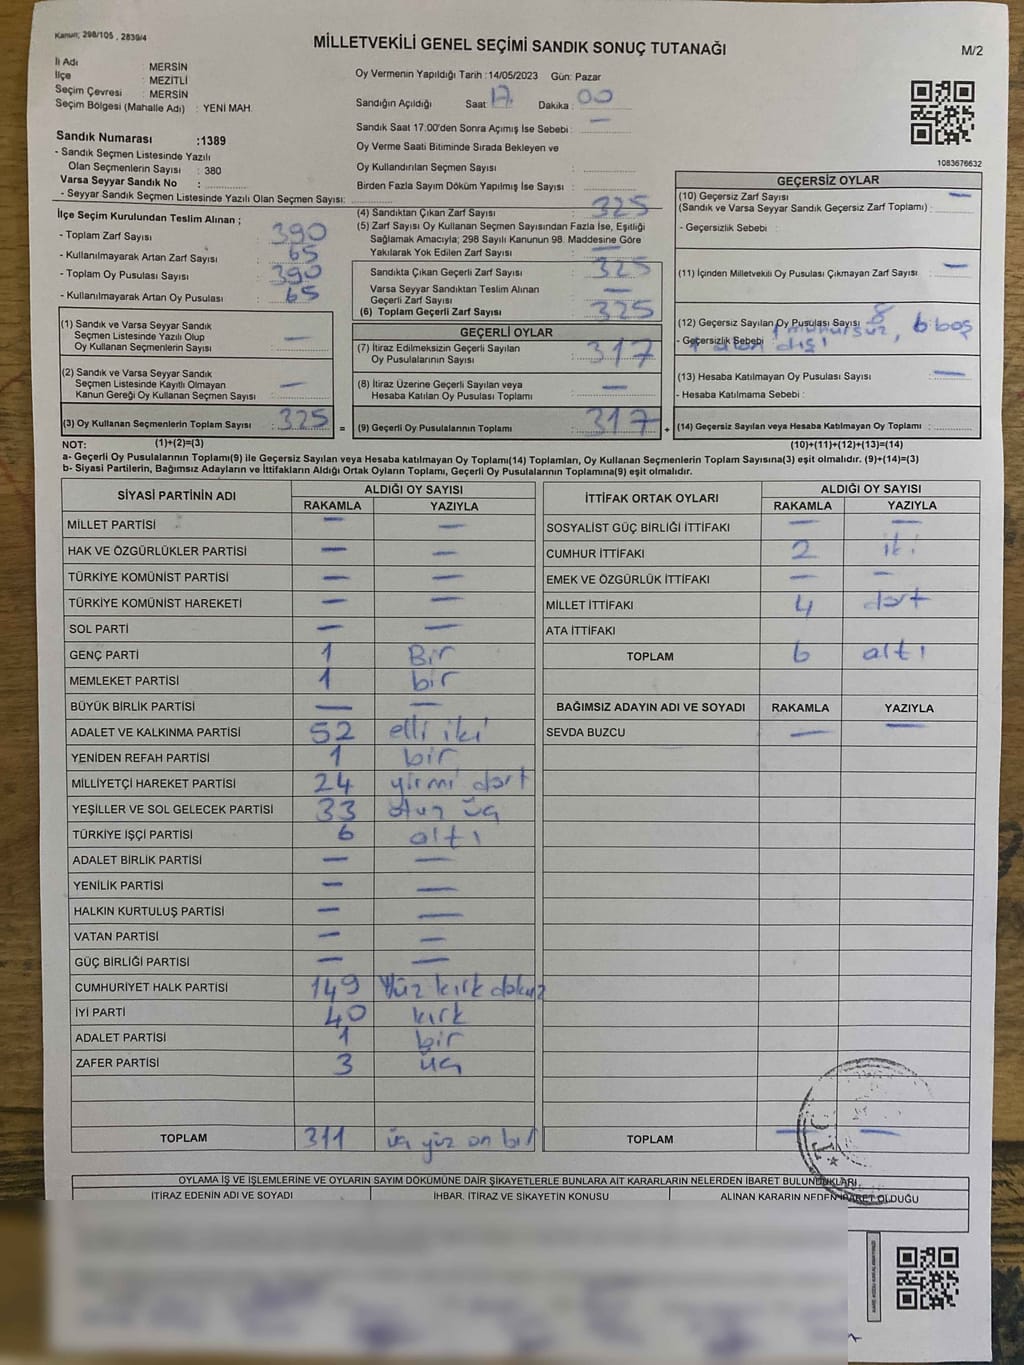 Kanun; 298/105 , 2839/4
MİLLETVEKİLİ GENEL SEÇİMİ SANDIK SONUÇ TUTANAĞI
M/2
İl Adı : MERSİN
İlçe : MEZİTLİ
Seçim Çevresi : MERSİN
Seçim Bölgesi (Mahalle Adı) : YENİ MAH.
Oy Vermenin Yapıldığı Tarih :14/05/2023 Gün: Pazar
Sandığın Açıldığı Saat 17 Dakika : 00
Sandık Saat 17:00'den Sonra Açımış İse Sebebi : —
Oy Verme Saati Bitiminde Sırada Bekleyen ve
Oy Kullandırılan Seçmen Sayısı :
Birden Fazla Sayım Döküm Yapılmış İse Sayısı :
1083676632
Sandık Numarası :1389
- Sandık Seçmen Listesinde Yazılı
Olan Seçmenlerin Sayısı : 380
Varsa Seyyar Sandık No :
- Seyyar Sandık Seçmen Listesinde Yazılı Olan Seçmen Sayısı:
İlçe Seçim Kurulundan Teslim Alınan ;
- Toplam Zarf Sayısı : 390
- Kullanılmayarak Artan Zarf Sayısı : 65
- Toplam Oy Pusulası Sayısı : 390
- Kullanılmayarak Artan Oy Pusulası : 65
(1) Sandık ve Varsa Seyyar Sandık
Seçmen Listesinde Yazılı Olup
Oy Kullanan Seçmenlerin Sayısı : —
(2) Sandık ve Varsa Seyyar Sandık
Seçmen Listesinde Kayıtlı Olmayan
Kanun Gereği Oy Kullanan Seçmen Sayısı : —
(3) Oy Kullanan Seçmenlerin Toplam Sayısı : 325
=
(4) Sandıktan Çıkan Zarf Sayısı : 325
(5) Zarf Sayısı Oy Kullanan Seçmen Sayısından Fazla İse, Eşitliği
Sağlamak Amacıyla; 298 Sayılı Kanunun 98. Maddesine Göre
Yakılarak Yok Edilen Zarf Sayısı : —
Sandıkta Çıkan Geçerli Zarf Sayısı : 325
Varsa Seyyar Sandıktan Teslim Alınan
Geçerli Zarf Sayısı : —
(6) Toplam Geçerli Zarf Sayısı : 325
GEÇERLİ OYLAR
(7) İtiraz Edilmeksizin Geçerli Sayılan
Oy Pusulalarının Sayısı : 317
(8) İtiraz Üzerine Geçerli Sayılan veya
Hesaba Katılan Oy Pusulası Toplamı : —
(9) Geçerli Oy Pusulalarının Toplamı : 317
+
GEÇERSİZ OYLAR
(10) Geçersiz Zarf Sayısı —
(Sandık ve Varsa Seyyar Sandık Geçersiz Zarf Toplamı) :
- Geçersizlik Sebebi :
(11) İçinden Milletvekili Oy Pusulası Çıkmayan Zarf Sayısı : —
(12) Geçersiz Sayılan Oy Pusulası Sayısı : 8
- Geçersizlik Sebebi 1 mühürsüz, 6 boş
1 alan dışı
(13) Hesaba Katılmayan Oy Pusulası Sayısı : —
- Hesaba Katılmama Sebebi :
(14) Geçersiz Sayılan veya Hesaba Katılmayan Oy Toplamı :
NOT: (1)+(2)=(3) (10)+(11)+(12)+(13)=(14)
a- Geçerli Oy Pusulalarının Toplamı(9) ile Geçersiz Sayılan veya Hesaba katılmayan Oy Toplamı(14) Toplamları, Oy Kullanan Seçmenlerin Toplam Sayısına(3) eşit olmalıdır. (9)+(14)=(3)
b- Siyasi Partilerin, Bağımsız Adayların ve İttifakların Aldığı Ortak Oyların Toplamı, Geçerli Oy Pusulalarının Toplamına(9) eşit olmalıdır.
SİYASİ PARTİNİN ADI ALDIĞI OY SAYISI
RAKAMLA YAZIYLA
MİLLET PARTİSİ — —
HAK VE ÖZGÜRLÜKLER PARTİSİ — —
TÜRKİYE KOMÜNİST PARTİSİ — —
TÜRKİYE KOMÜNİST HAREKETİ — —
SOL PARTİ — —
GENÇ PARTİ 1 Bir
MEMLEKET PARTİSİ 1 bir
BÜYÜK BİRLİK PARTİSİ — —
ADALET VE KALKINMA PARTİSİ 52 elli iki
YENİDEN REFAH PARTİSİ 1 bir
MİLLİYETÇİ HAREKET PARTİSİ 24 yirmi dört
YEŞİLLER VE SOL GELECEK PARTİSİ 33 otuz üç
TÜRKİYE İŞÇİ PARTİSİ 6 altı
ADALET BİRLİK PARTİSİ — —
YENİLİK PARTİSİ — —
HALKIN KURTULUŞ PARTİSİ — —
VATAN PARTİSİ — —
GÜÇ BİRLİĞİ PARTİSİ — —
CUMHURİYET HALK PARTİSİ 149 Yüz kırk dokuz
İYİ PARTİ 40 kırk
ADALET PARTİSİ 1 bir
ZAFER PARTİSİ 3 üç
TOPLAM 311 üç yüz on bir
İTTİFAK ORTAK OYLARI ALDIĞI OY SAYISI
RAKAMLA YAZIYLA
SOSYALİST GÜÇ BİRLİĞİ İTTİFAKI — —
CUMHUR İTTİFAKI 2 iki
EMEK VE ÖZGÜRLÜK İTTİFAKI — —
MİLLET İTTİFAKI 4 dört
ATA İTTİFAKI
TOPLAM 6 altı
BAĞIMSIZ ADAYIN ADI VE SOYADI RAKAMLA YAZIYLA
SEVDA BUZCU — —
TOPLAM — —
OYLAMA İŞ VE İŞLEMLERİNE VE OYLARIN SAYIM DÖKÜMÜNE DAİR ŞİKAYETLERLE BUNLARA AİT KARARLARIN NELERDEN İBARET BULUNDUKLARI
İTİRAZ EDENİN ADI VE SOYADI İHBAR, İTİRAZ VE ŞİKAYETİN KONUSU ALINAN KARARIN NEDEN İBARET OLDUĞU